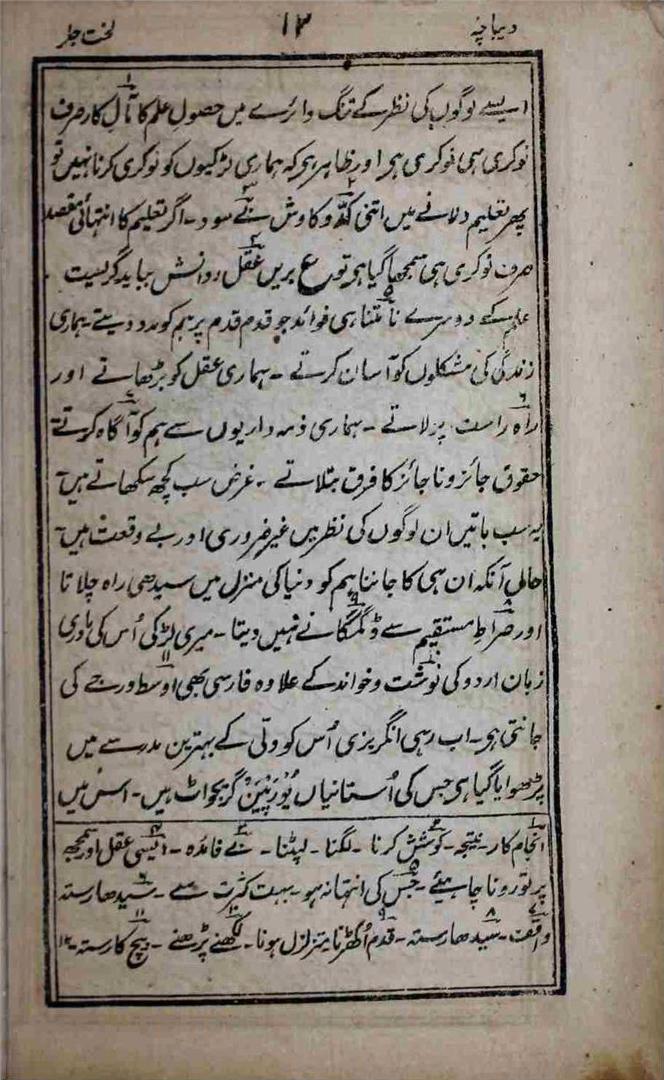 دیباچہ ۱۳ لخت جگر
ایسے لوگوں کی نظر کے تنگ دائرے میں حصولِ علم کا مآلِ کار صرف
نوکری ہی نوکری ہی اور ظاہر ہی کہ ہماری لڑکیوں کو نوکری کرنا نہیں تو
پھر تعلیم دلانے میں اتنی کدّ و کاوش بے سود۔ اگر تعلیم کا انتہائی مقصد
صرف نوکری ہی سمجھا گیا ہی تو ع بریں عقل و دانش بباید گریست
علم کے دوسرے نامتناہی فوائد جو قدم قدم پر ہم کو مدد دیتے۔ ہماری
زندگی کی مشکلوں کو آسان کرتے۔ ہماری عقل کو بڑھاتے اور
راہ راست پر لاتے۔ ہماری ذمہ داریوں سے ہم کو آگاہ کرتے
حقوق جائز و ناجائز کا فرق بتلاتے۔ غرض سب کچھ سکھاتے ہیں
یہ سب باتیں ان لوگوں کی نظر میں غیر ضروری اور بے وقعت ہیں
حال آنکہ ان ہی کا جاننا ہم کو دنیا کی منزل میں سیدھی راہ چلاتا
اور صراطِ مستقیم سے ڈگمگانے نہیں دیتا۔ میری لڑکی اُس کی مادری
زبان اردو کی نوشت و خواند کے علاوہ فارسی بھی اوسط درجے کی
جانتی ہی۔ اب رہی انگریزی اُس کو دلّی کے بہترین مدرسے میں
پڑھوایا گیا ہی جس کی اُستانیاں یُوْرَپْیَنْ گریجواٹ ہیں۔ اس میں
۱ انجام کار۔ نتیجہ۔ ۲ کوشش کرنا۔ لگنا۔ لپٹنا۔ ۳ بے فائدہ۔ ۴ ایسی عقل اور سمجھ
پر تو رونا چاہیئے۔ ۵ جس کی انتہا نہ ہو۔ بہت کثرت سے۔ ۶ سیدھا رستہ
۷ واقف۔ ۸ سیدھا رستہ۔ ۹ قدم اُکھڑنا۔ متزلزل ہونا۔ ۱۰ لکھنے پڑھنے۔ ۱۱ بیچ کا رستہ۔ ۱۲